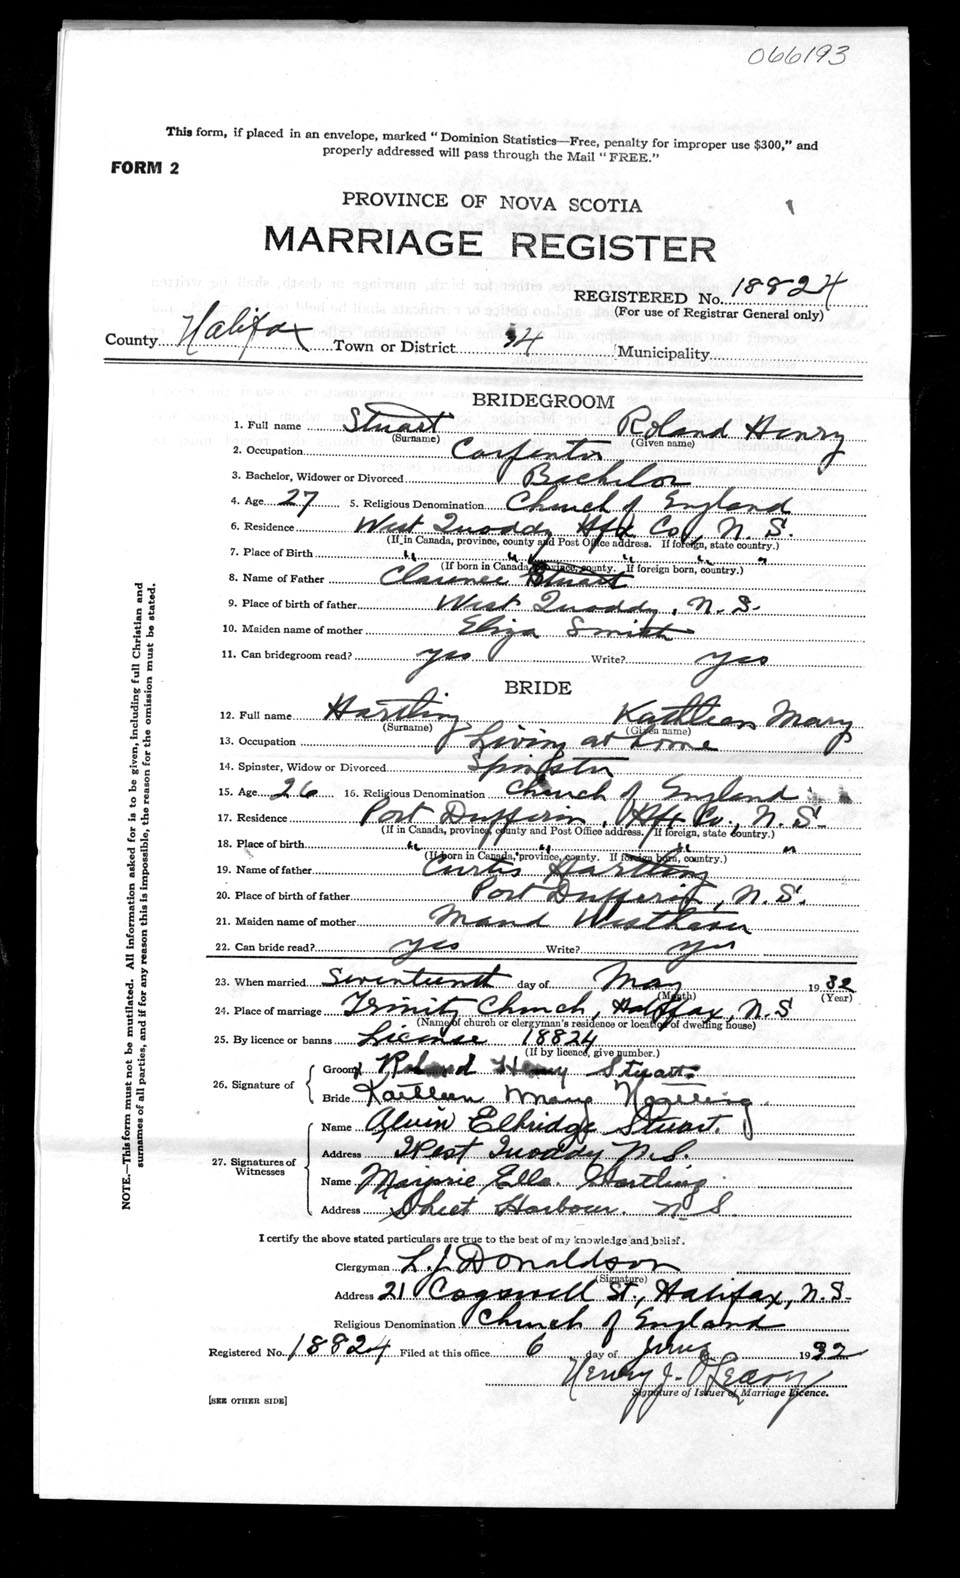 066193
This form, if placed in an envelope, marked "Dominion Statistics—Free, penalty for improper use $300," and
properly addressed will pass through the Mail "FREE."
FORM 2
PROVINCE OF NOVA SCOTIA
MARRIAGE REGISTER
REGISTERED No. 18824
(For use of Registrar General only)
County Halifax Town or District 34 Municipality
BRIDEGROOM
1. Full name Stuart Roland Henry
(Surname) (Given name)
2. Occupation Carpenter
3. Bachelor, Widower or Divorced Bachelor
4. Age 27 5. Religious Denomination Church of England
6. Residence West Quoddy Hfx Co, N.S.
(If in Canada, province, county and Post Office address. If foreign, state country.)
7. Place of Birth " " " "
(If born in Canada, province, county. If foreign born, country.)
8. Name of Father Clarence Stuart
9. Place of birth of father West Quoddy, N.S.
10. Maiden name of mother Eliza Smith
11. Can bridegroom read? yes Write? yes
BRIDE
12. Full name Hartling Kathleen Mary
(Surname) (Given name)
13. Occupation Living at home
14. Spinster, Widow or Divorced Spinster
15. Age 26 16. Religious Denomination Church of England
17. Residence Port Dufferin, Hfx Co., N.S.
(If in Canada, province, county and Post Office address. If foreign, state country.)
18. Place of birth " " " "
(If born in Canada, province, county. If foreign born, country.)
19. Name of father Curtis Hartling
20. Place of birth of father Port Dufferin, N.S.
21. Maiden name of mother Maud Westhaver
22. Can bride read? yes Write? yes
23. When married Seventeenth day of May 1932
(Month) (Year)
24. Place of marriage Trinity Church, Halifax, N.S
(Name of church or clergyman's residence or location of dwelling house)
25. By licence or banns License 18824
(If by licence, give number.)
26. Signature of
Groom Roland Henry Stuart
Bride Kathleen Mary Hartling
27. Signatures of Witnesses
Name Alvin Elkridge Stuart.
Address West Quoddy N.S.
Name Marjorie Ella Hartling
Address Sheet Harbour. N S.
I certify the above stated particulars are true to the best of my knowledge and belief.
Clergyman L. J. Donaldson
(Signature)
Address 21 Cogswell St., Halifax, N.S.
Religious Denomination Church of England
Registered No. 18824 Filed at this office 6 day of June 1932
Henry J. O'Leary
Signature of Issuer of Marriage Licence.
[SEE OTHER SIDE]
NOTE.—This form must not be mutilated. All information asked for is to be given, including full Christian and
surnames of all parties, and if for any reason this is impossible, the reason for the omission must be stated.